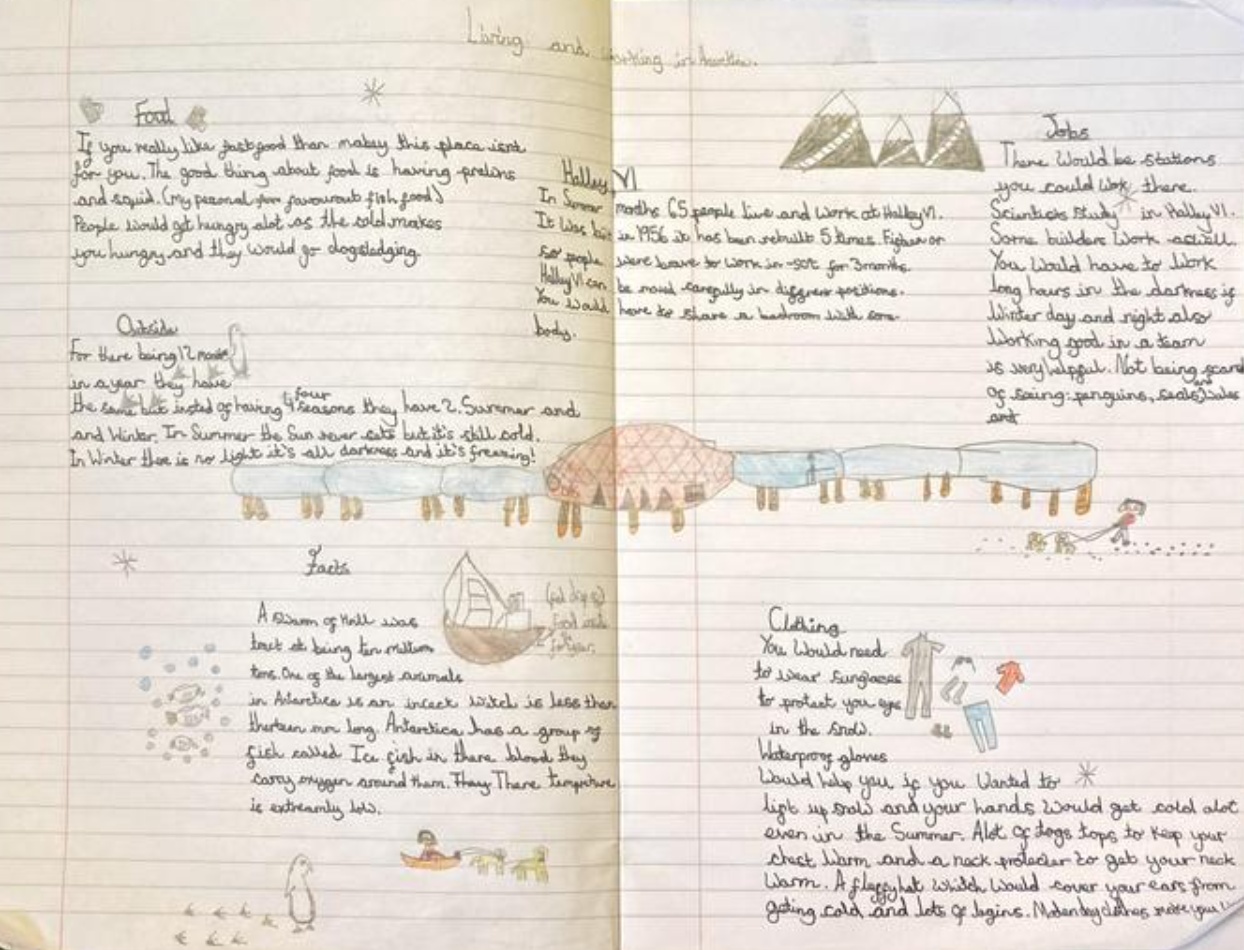 Living and working in
Food
If you really like fastfood than mabey this place isnt
for you. The good thing about food is having
and squid. (my personal favourout fish food)
People would get hungry alot as the cold makes
you hungry and they would go dogsledging.
Outside
For there being 12
in a year they have
the same but insted of having 4 four seasons they have 2. Summer and
and Winter. In Summer the Sun never sets but it's still cold.
In Winter there is no light it's all darkness and it's freezing!
Halley VI
In Summer months 65 people live and work at Halley VI.
It was built in 1956 it has been rebuilt 5 times. or
people were to work in for 3 months.
Halley VI can be moved carefully in positions.
You would have to share a bedroom with some
body.
Jobs
There would be stations
you could work there.
Scientists study in Halley VI.
Some builders work aswell.
You would have to work
long hours in the darkness if
Winter day and night also
working good in a team
is very helpful. Not being scard
of seing: penguins, seals and
and
Facts
A of was
at being ten
tons. One of the largest animals
in Antarctica is an insect witch is less than
therteen mm long. Antarctica has a group of
fish called Ice fish in there blood they
carry oxygen around them. There
is extreamly low.
food
Clothing
You would need
to wear
to protect you eyes
in the snow.
Waterproof gloves
would help you if you wanted to
lift up snow and your hands would get cold alot
even in the Summer. Alot of tops to keep your
chest warm and a neck to get your neck
warm. A hat whitch would cover your ears from
geting cold and lots of